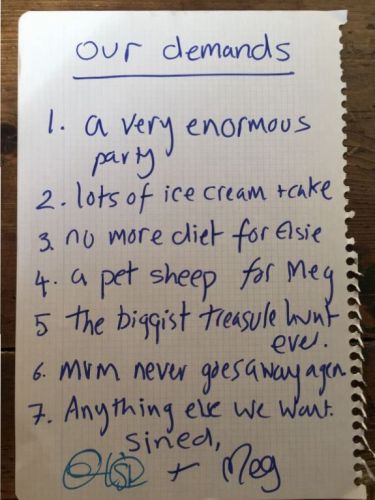 our demands
1. a very enormous
party
2. lots of ice cream + cake
3. no more diet for Elsie
4. a pet sheep for Meg
5 the biggist treasure hunt
ever.
6. mum never goes away agen
7. Anything else we want.
sined,
+ Meg